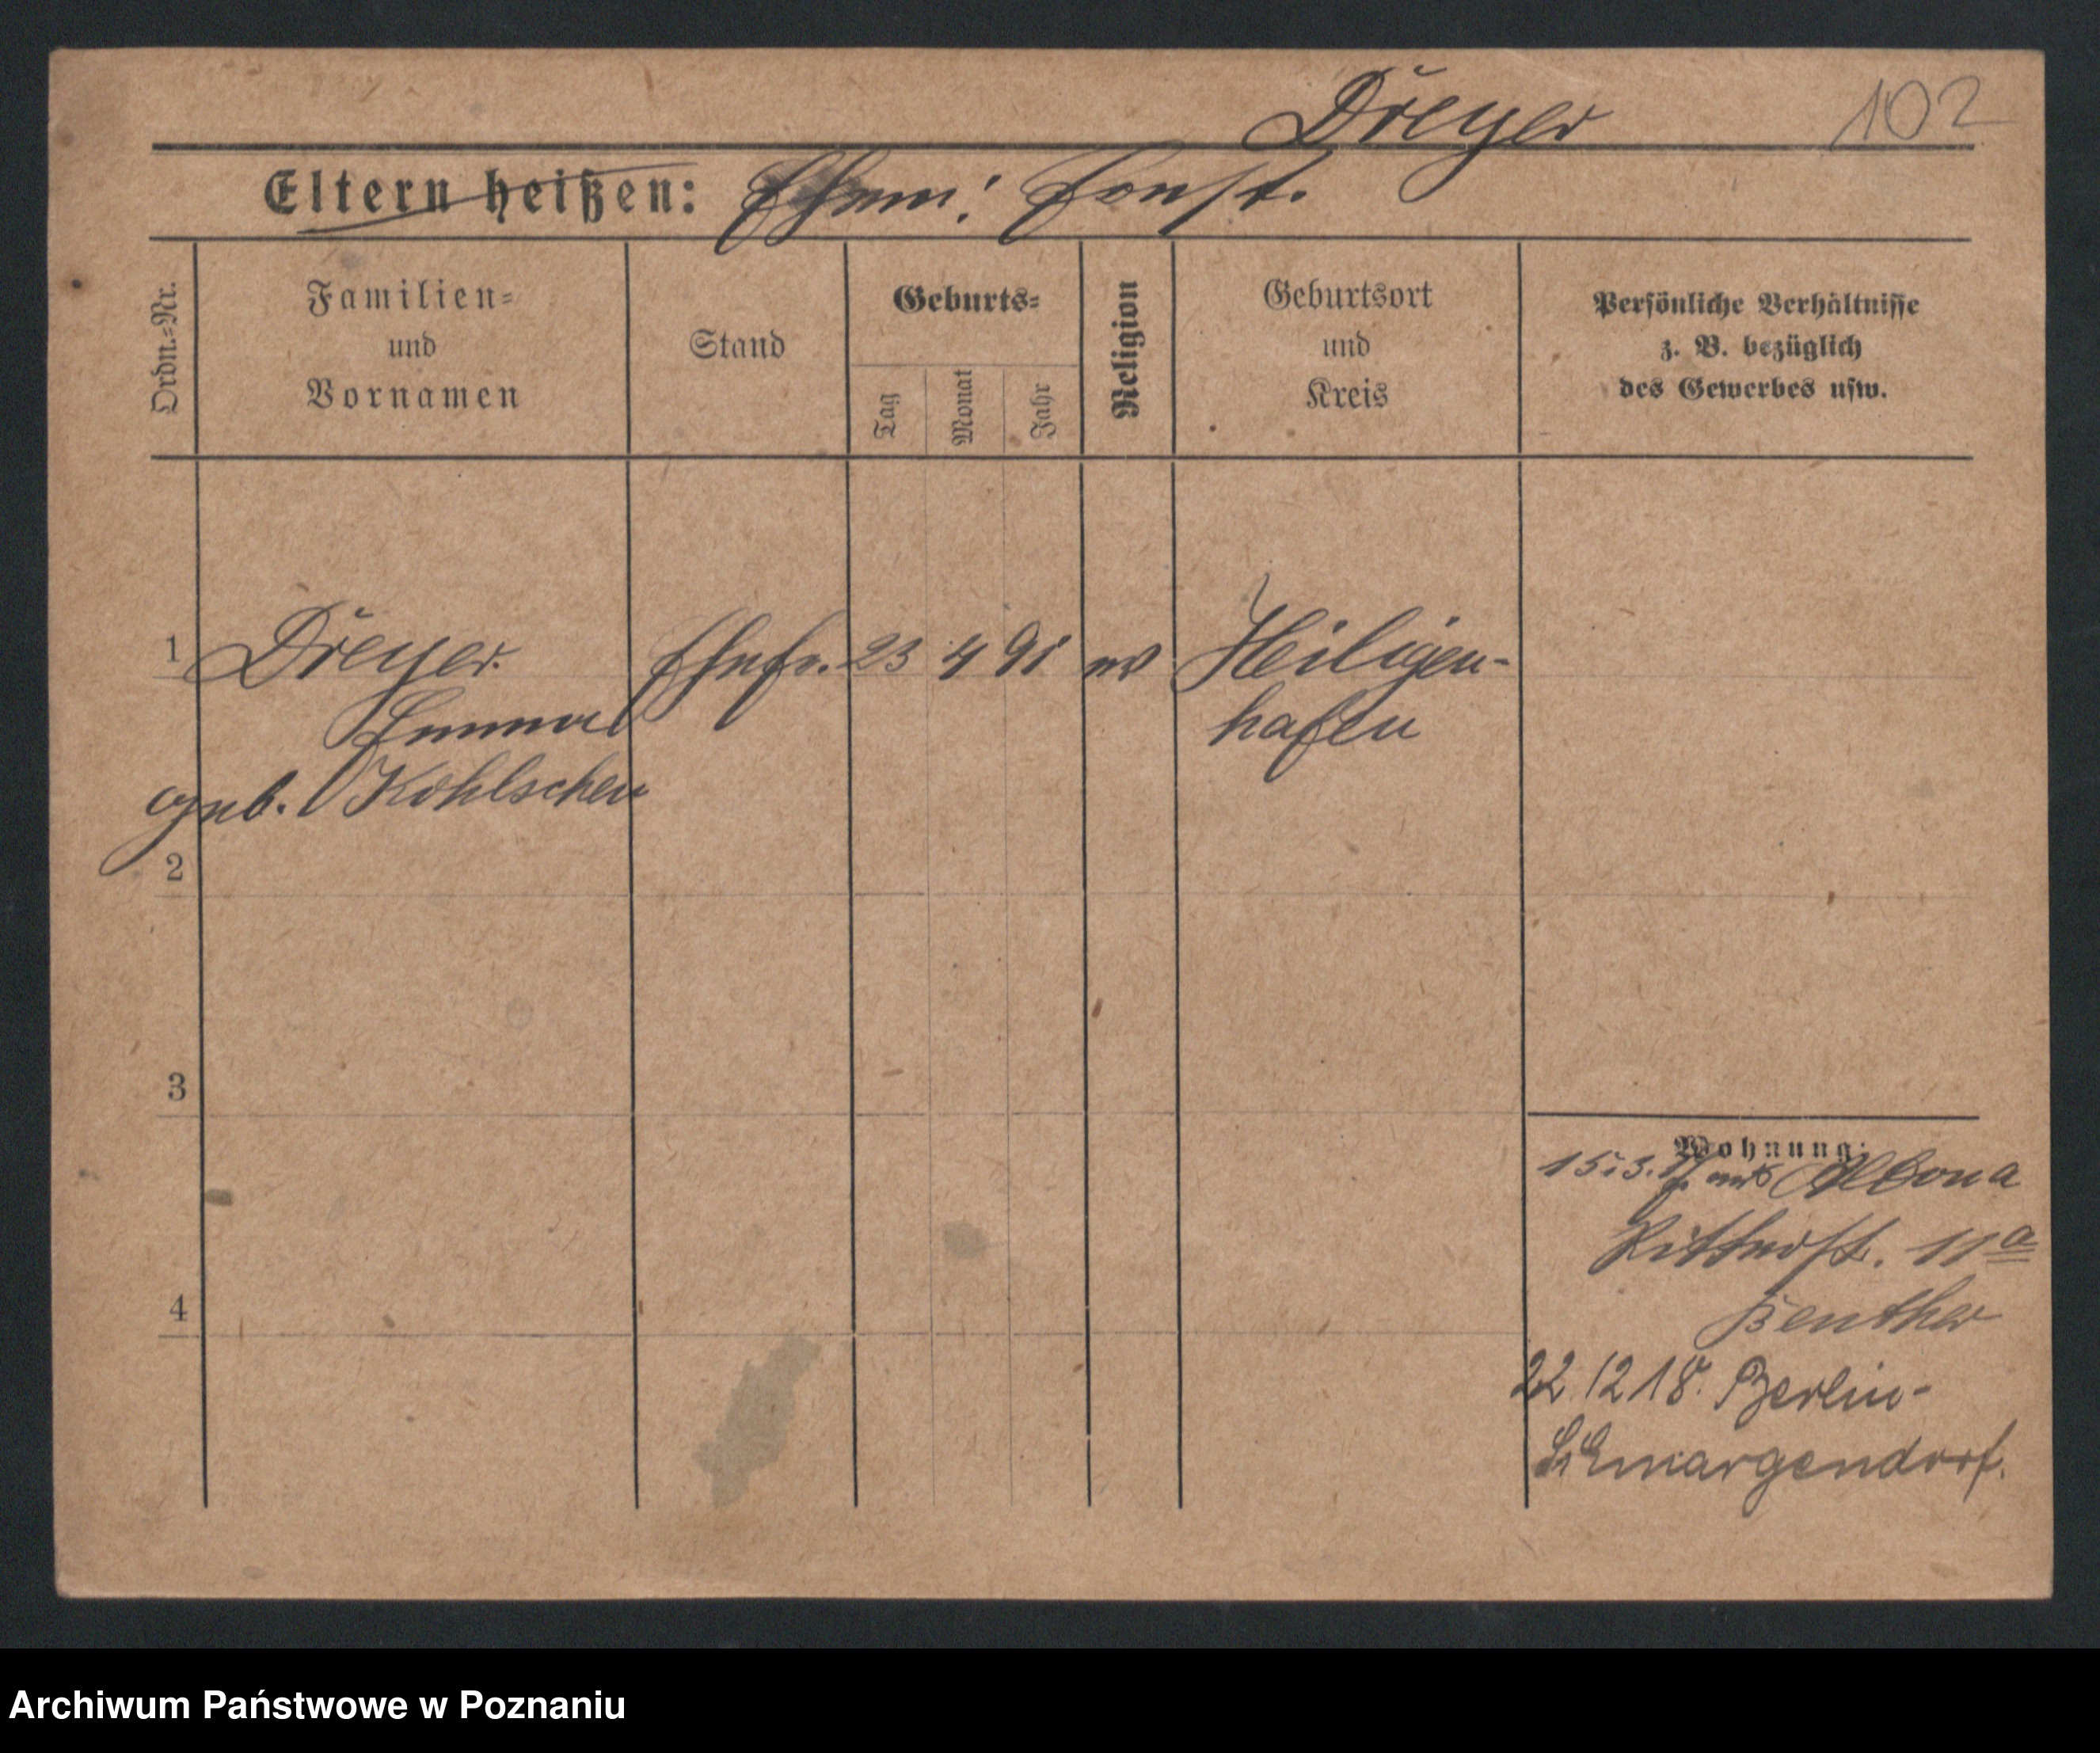 Dreyer 102
Eltern heißen: Ehem: Ernst.
Ordn.-Nr.
Familien-
und
Vornamen
Stand
Geburts-
Tag
Monat
Jahr
Religion
Geburtsort
und
Kreis
Persönliche Verhältnisse
z. B. bezüglich
des Gewerbes usw.
1 Dreyer Ehefr. 23 4 91 ev Heiligen-
Emma hafen
geb. Kohlscheu
2
3
4
Wohnung:
15.3. Altona
Ritterst. 11a
Benther
22.12 18. Berlin-
Schmargendorf.
Archiwum Państwowe w Poznaniu